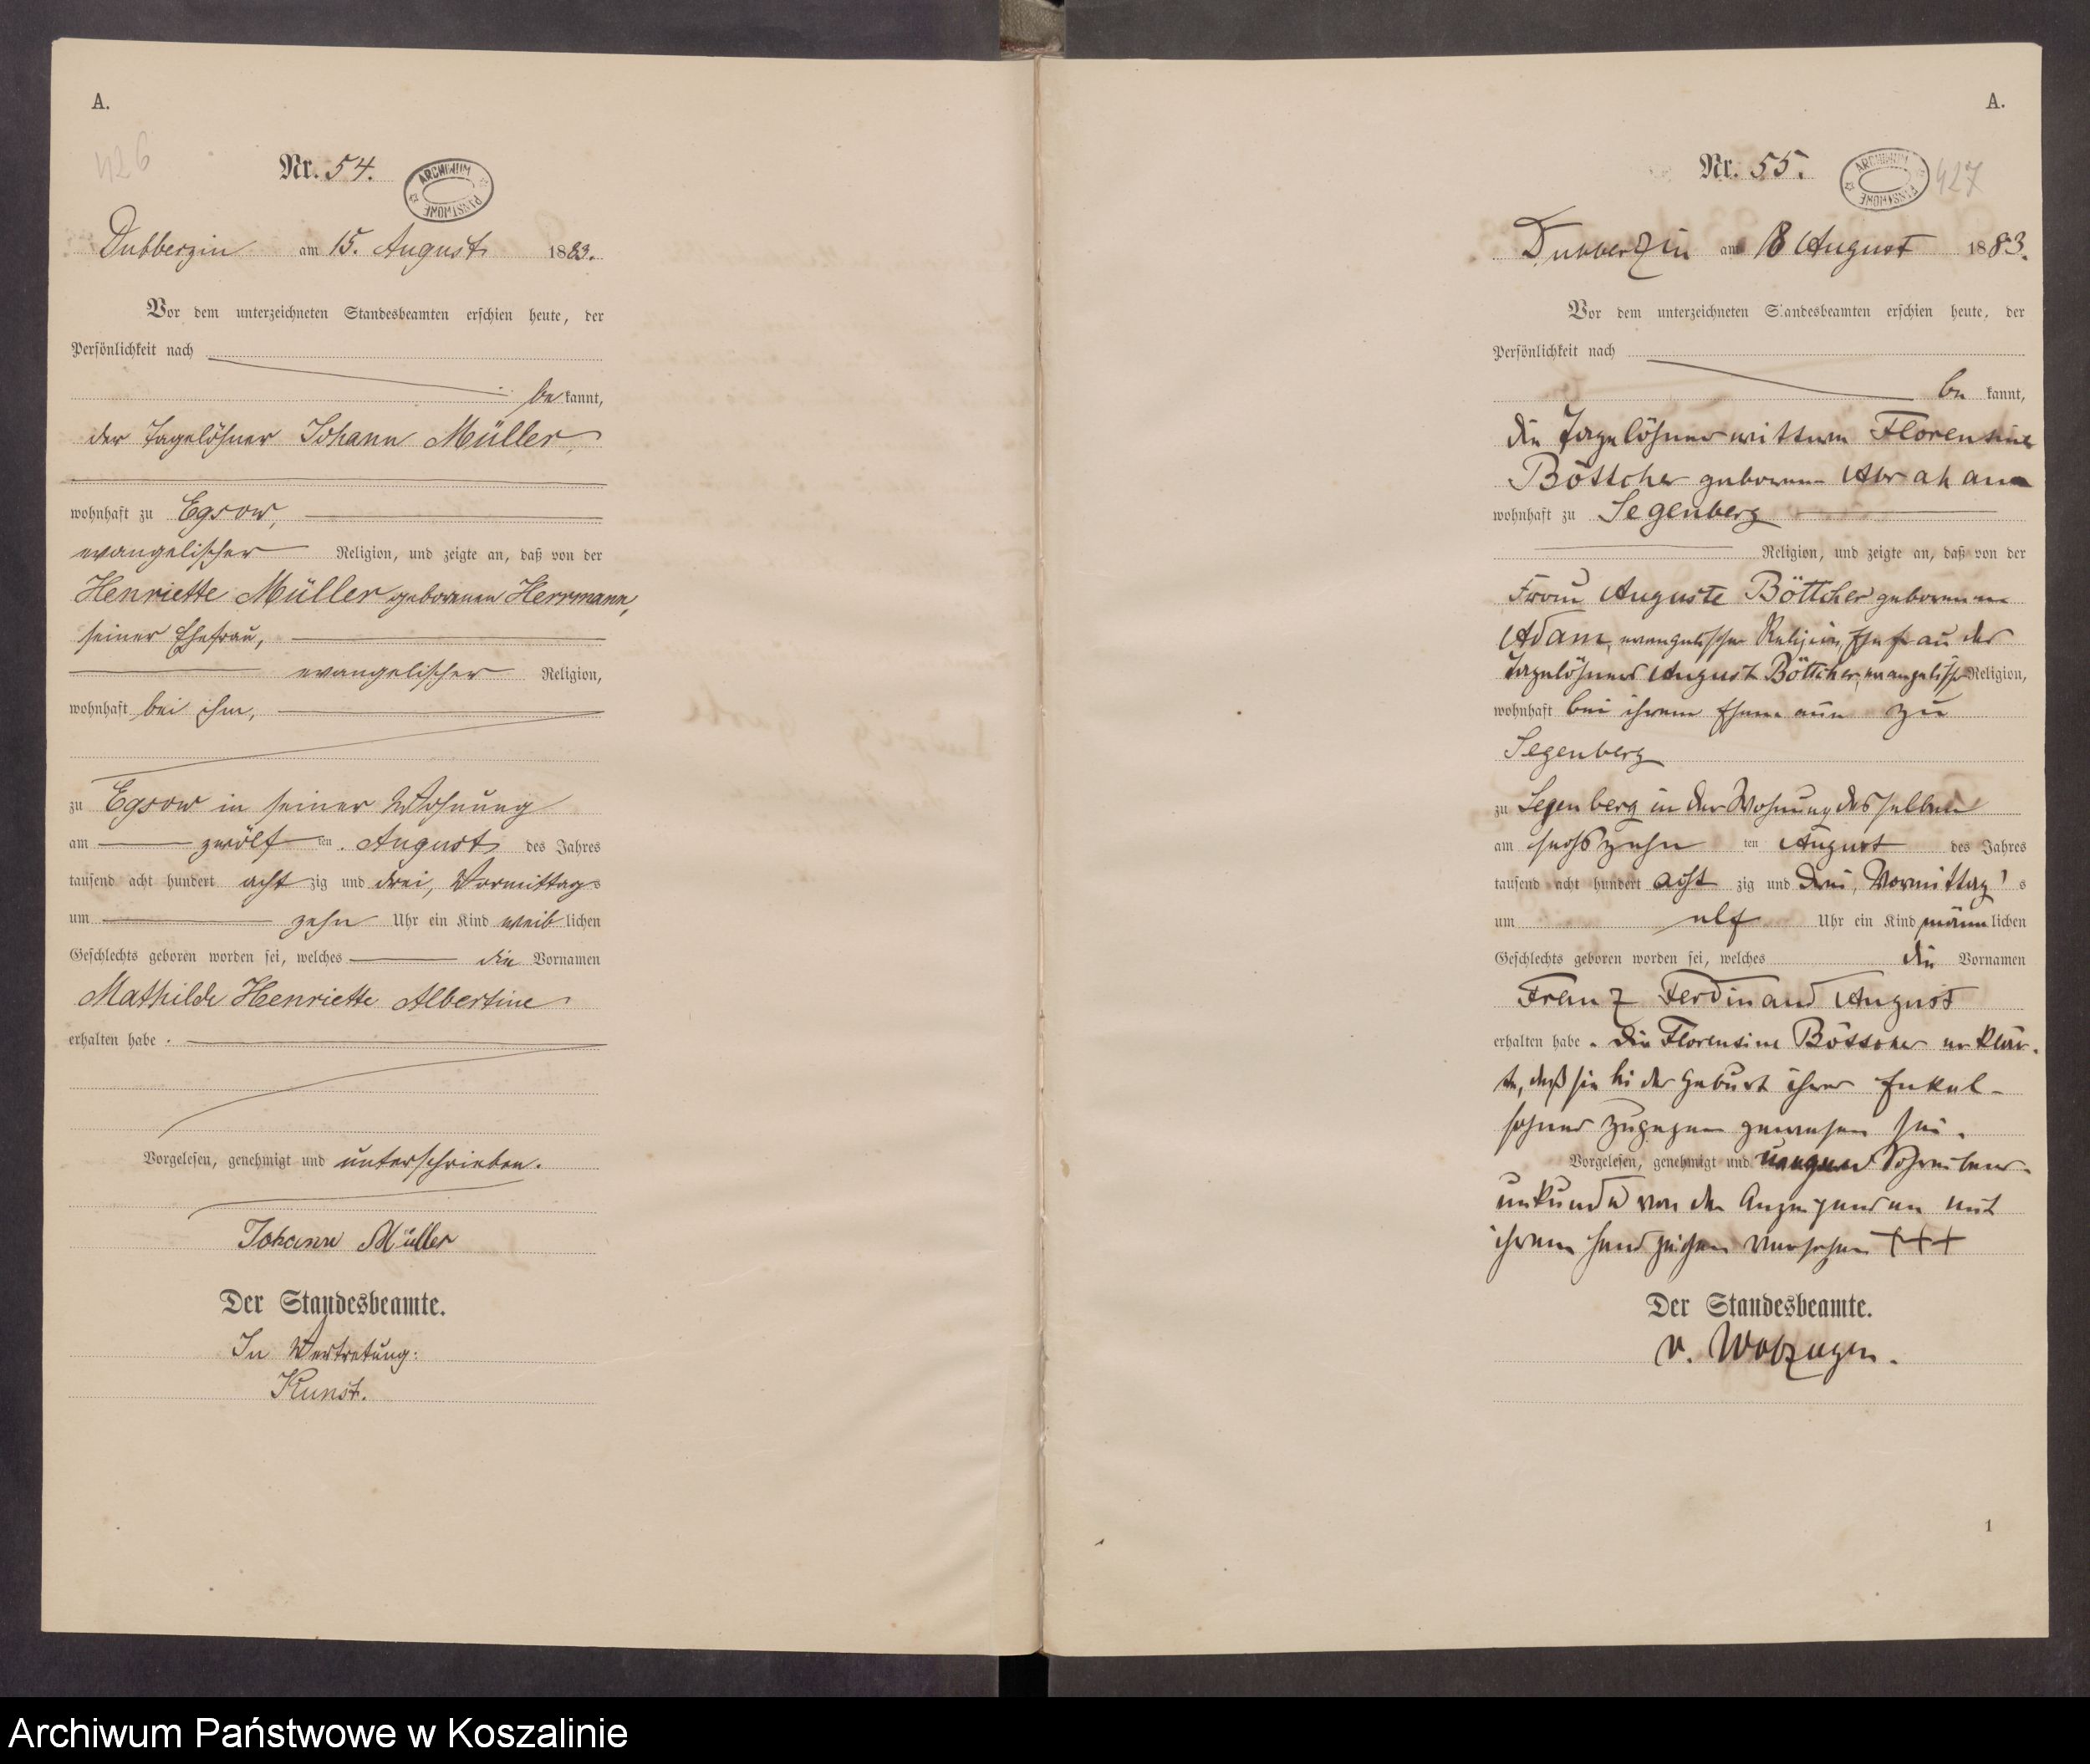 A.
426
Nr. 54.
ARCHIWUM PAŃSTWOWE
Dubberzin am 15. August 1883.
Vor dem unterzeichneten Standesbeamten erschien heute, der
Persönlichkeit nach
be kannt,
der Tagelöhner Johann Müller,
wohnhaft zu Egsow,
evangelischer Religion, und zeigte an, daß von der
Henriette Müller geborenen Herrmann,
seiner Ehefrau,
evangelischer Religion,
wohnhaft bei ihm,
zu Egsow in seiner Wohnung
am zwölf ten August des Jahres
tausend acht hundert acht zig und drei, Vormittags
um zehn Uhr ein Kind weib lichen
Geschlechts geboren worden sei, welches die Vornamen
Mathilde Henriette Albertine
erhalten habe.
Vorgelesen, genehmigt und unterschrieben.
Johann Müller
Der Standesbeamte.
In Vertretung:
Kunst.
A.
Nr. 55.
ARCHIWUM PAŃSTWOWE
427
Dubberzin am 18 August 1883.
Vor dem unterzeichneten Standesbeamten erschien heute, der
Persönlichkeit nach
be kannt,
die Tagelöhnerwittwe Florentine
Böttcher geborene Abraham
wohnhaft zu Segenberg
Religion, und zeigte an, daß von der
Frau Auguste Böttcher geborenen
Adam, evangelischer Religion, Ehefrau des
Tagelöhners August Böttcher, evangelisch Religion,
wohnhaft bei ihrem Ehemann zu
Segenberg
zu Segenberg in der Wohnung desselben
am sechszehn ten August des Jahres
tausend acht hundert acht zig und drei, Vormittag's
um elf Uhr ein Kind männ lichen
Geschlechts geboren worden sei, welches die Vornamen
Franz Ferdinand August
erhalten habe. Die Florentine Böttcher erklär-
te, daß sie bei der Geburt ihres Enkel-
sohnes zugegen gewesen sei.
Vorgelesen, genehmigt und wegen Schreibens-
unkunde von der Anzeigenden mit
ihrem Handzeichen versehen +++
Der Standesbeamte.
v. Wolzogen.
1
Archiwum Państwowe w Koszalinie